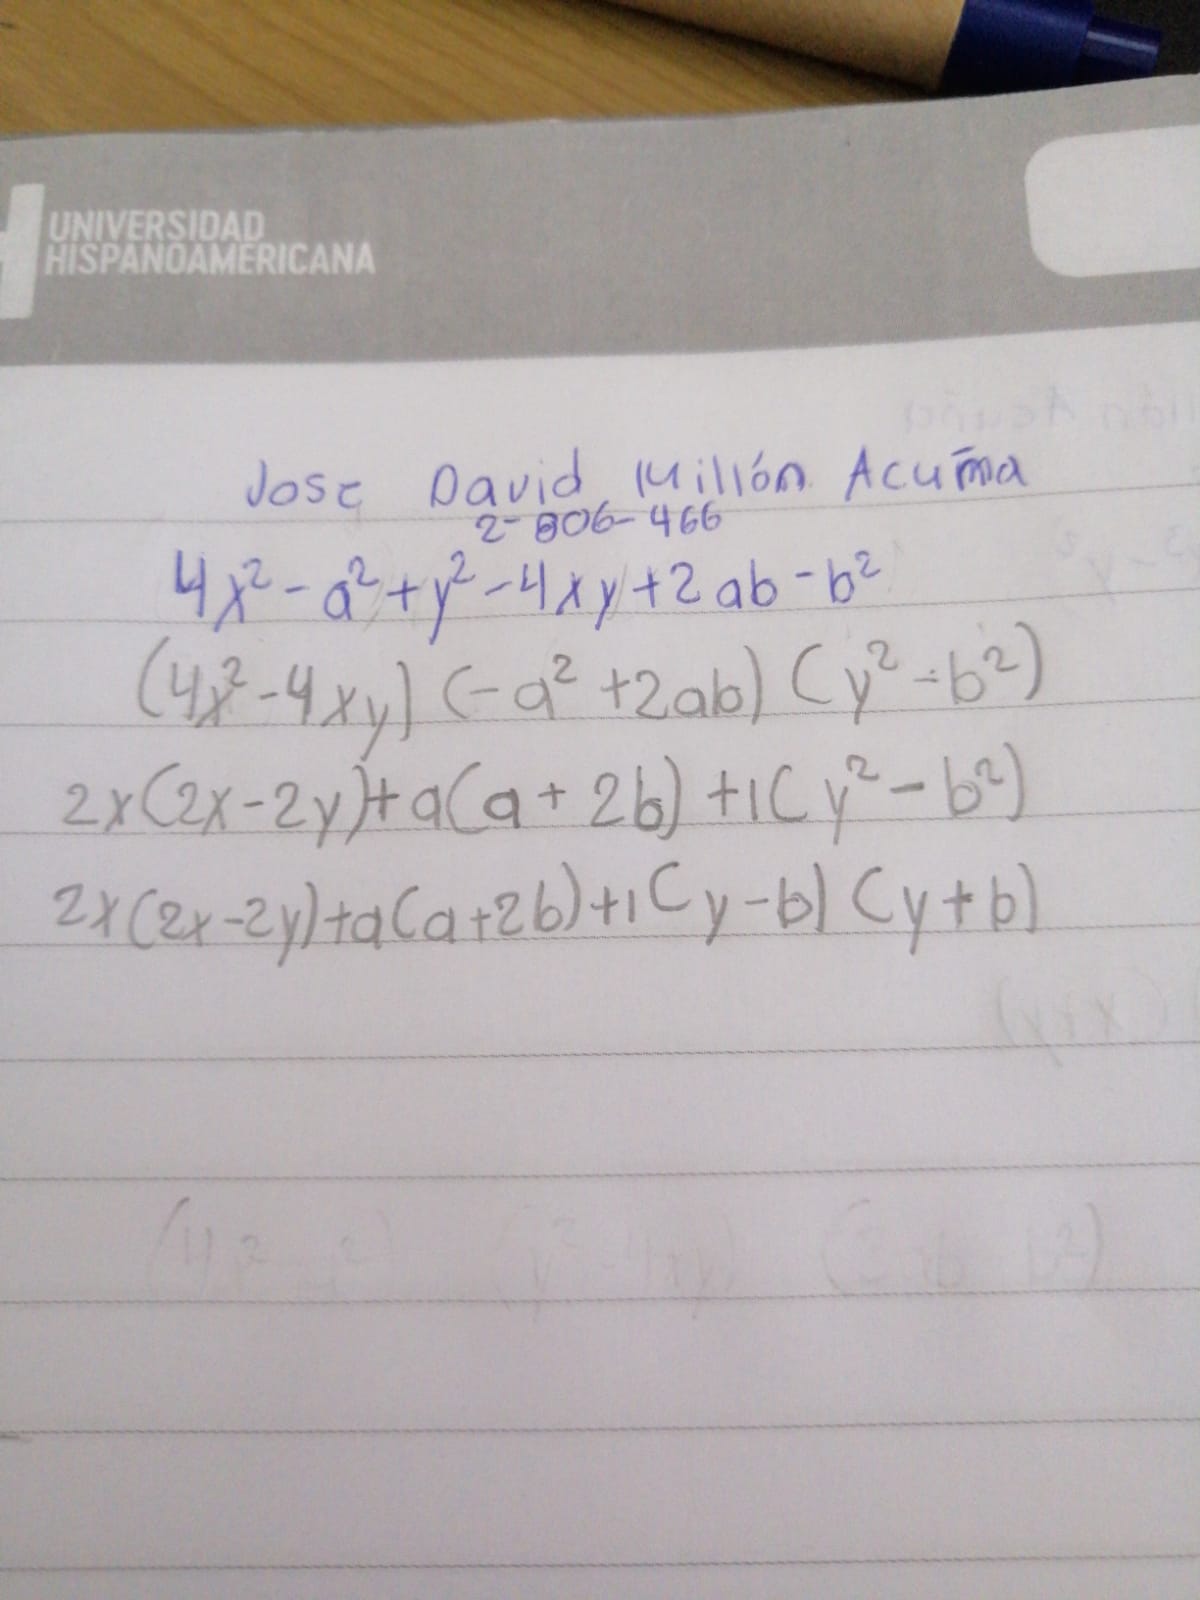 UNIVERSIDAD
HISPANOAMERICANA
Jose David Millón Acuña
2-806-466
4x² - a² + y² - 4xy + 2ab - b²
(4x² - 4xy) (-a² + 2ab) (y² - b²)
2x(2x-2y)+a(a+2b)+1(y²-b²)
2x(2x-2y)+a(a+2b)+1(y-b)(y+b)